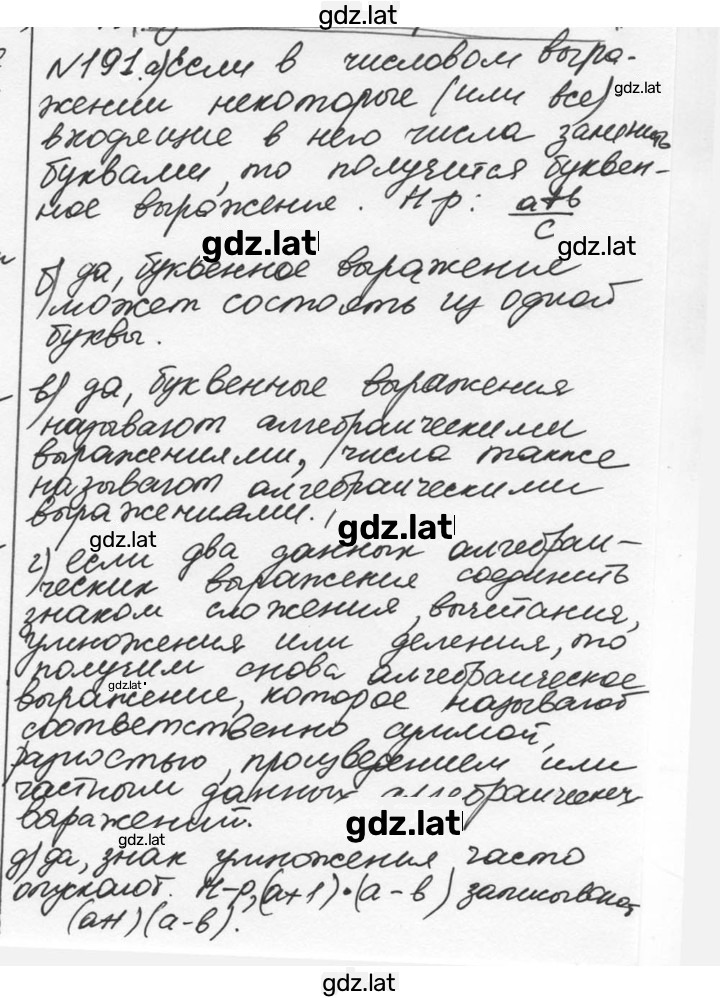 gdz.lat
№191.а) Если в числовом выра-
gdz.lat
жении некоторые (или все)
входящие в него числа заменить
буквами, то получится буквен-
ное выражение. Н-р: a+b
c
gdz.lat
gdz.lat
б) да, буквенное выражение
может состоять из одной
буквы.
в) да, буквенные выражения
называют алгебраическими
выражениями, числа также
называют алгебраическими
выражениями.
gdz.lat
gdz.lat
г) если два данных алгебраи-
ческих выражения соединить
знаком сложения, вычитания,
умножения или деления, то
получим снова алгебраическое
gdz.lat
выражение, которое называют
соответственно суммой,
разностью, произведением или
частным данных
выражений.
gdz.lat
gdz.lat
д) да, знак умножения часто
опускают. Н-р, (a+1)·(a-b) записывают
(a+1)(a-b).
gdz.lat